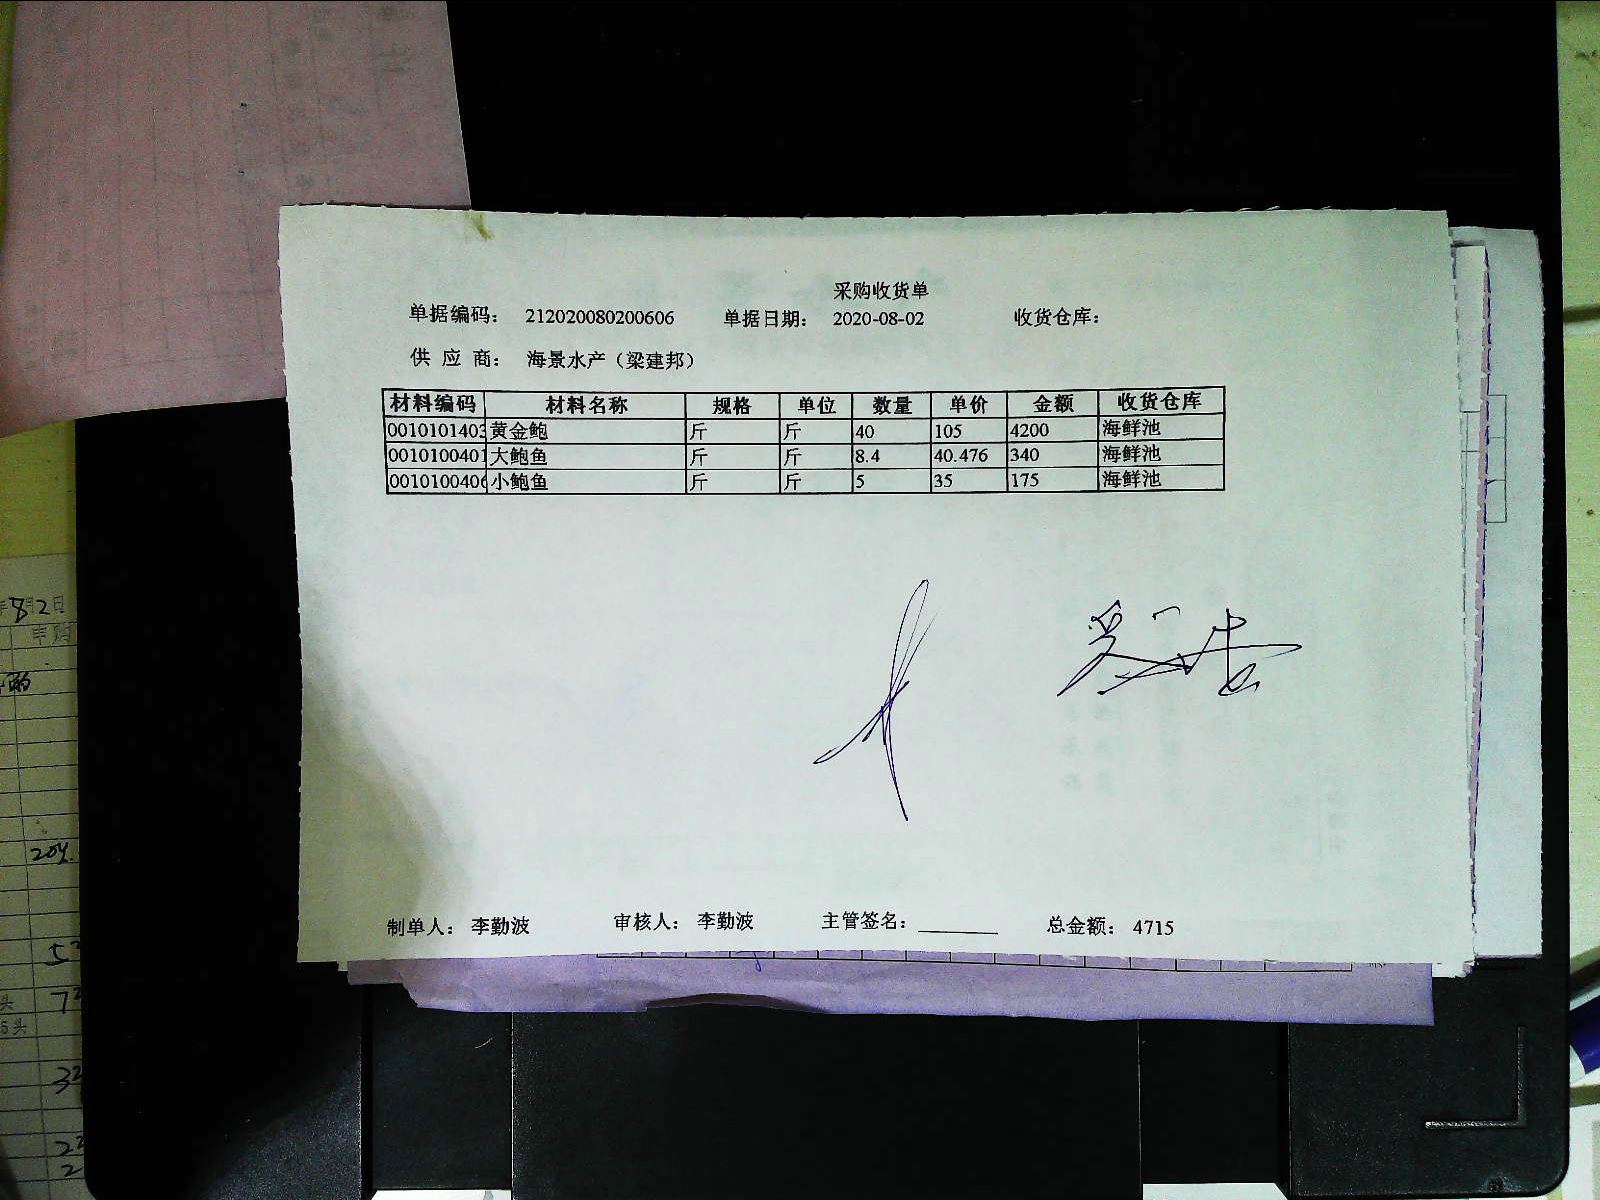 采购收货单
单据编码： 212020080200606 单据日期： 2020-08-02 收货仓库：
供 应 商： 海景水产（梁建邦）
材料编码 材料名称 规格 单位 数量 单价 金额 收货仓库
0010101403 黄金鲍 斤 斤 40 105 4200 海鲜池
0010100401 大鲍鱼 斤 斤 8.4 40.476 340 海鲜池
0010100406 小鲍鱼 斤 斤 5 35 175 海鲜池
制单人： 李勤波 审核人： 李勤波 主管签名： 总金额： 4715
年8月2日
申购